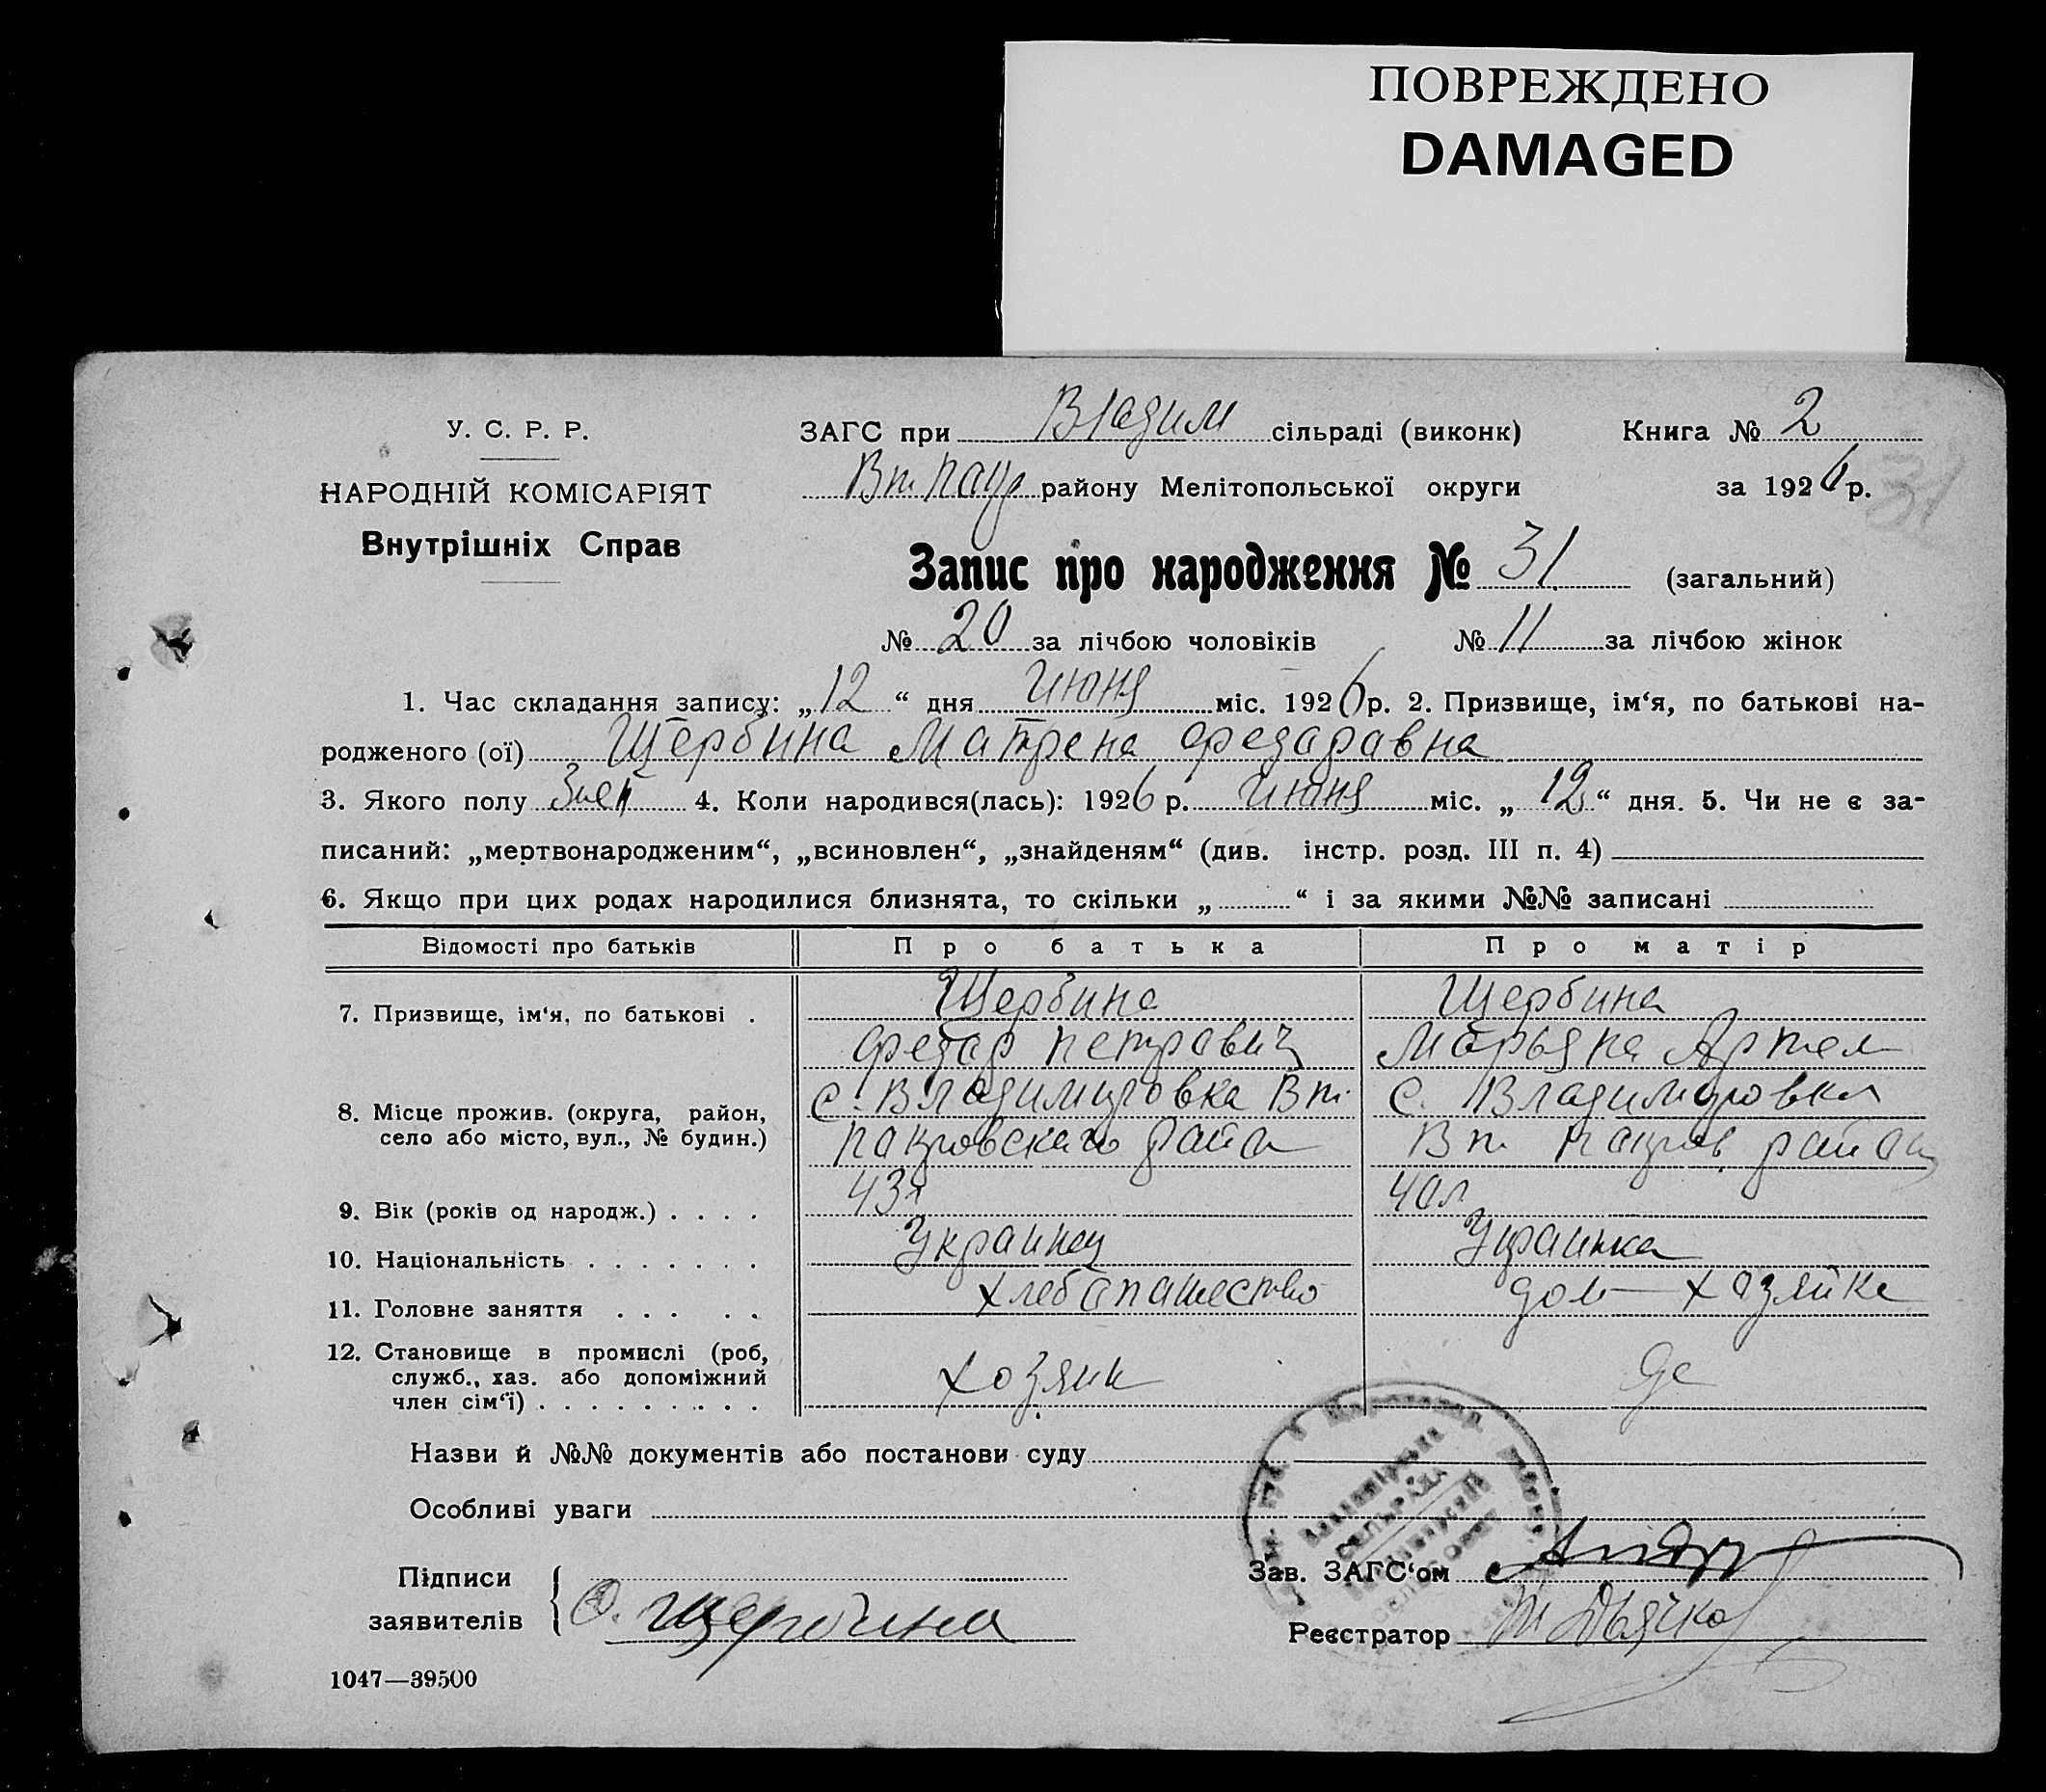 ПОВРЕЖДЕНО
DAMAGED
У. С. Р. Р.
НАРОДНІЙ КОМІСАРІЯТ
Внутрішніх Справ
ЗАГС при Владим сільраді (виконк)
Вт. Покр району Мелітопольської округи
Книга № 2
за 1926 р.
31
Запис про народження № 31 (загальний)
№ 20 за лічбою чоловіків № 11 за лічбою жінок
1. Час складання запису: „12“ дня Июня міс. 1926 р. 2. Призвище, ім‘я, по батькові на-
родженого (ої) Щербина Матрена Федаравна
3. Якого полу Жен 4. Коли народився(лась): 1926 р. Июня міс. „12“ дня. 5. Чи не є за-
писаний: „мертвонародженим“, „всиновлен“, „знайденям“ (див. інстр. розд. III п. 4)
6. Якщо при цих родах народилися близнята, то скільки „ “ і за якими №№ записані
Відомості про батьків Про батька Про матір
7. Призвище, ім‘я, по батькові . Щербина Щербина
Федар Петравич Марьяна Артем
8. Місце прожив. (округа, район, с. Владимировка Вт. с. Владимировка
село або місто, вул., № будин.) Покровскаго райа Вт Покров. района
9. Вік (років од народж.) . . . . 43л 40л
10. Національність . . . . . . . Украинец Украинка
11. Головне заняття . . . . . Хлебапашество дом хазяйка
12. Становище в промислі (роб,
служб., хаз. або допоміжний
член сім‘ї) . . . . . . . . . Хозяин
Назви й №№ документів або постанови суду
Особливі уваги
Підписи
заявителів Ф. Щербина
Зав. ЗАГС‘ом
Реєстратор Дьячко
1047—39500